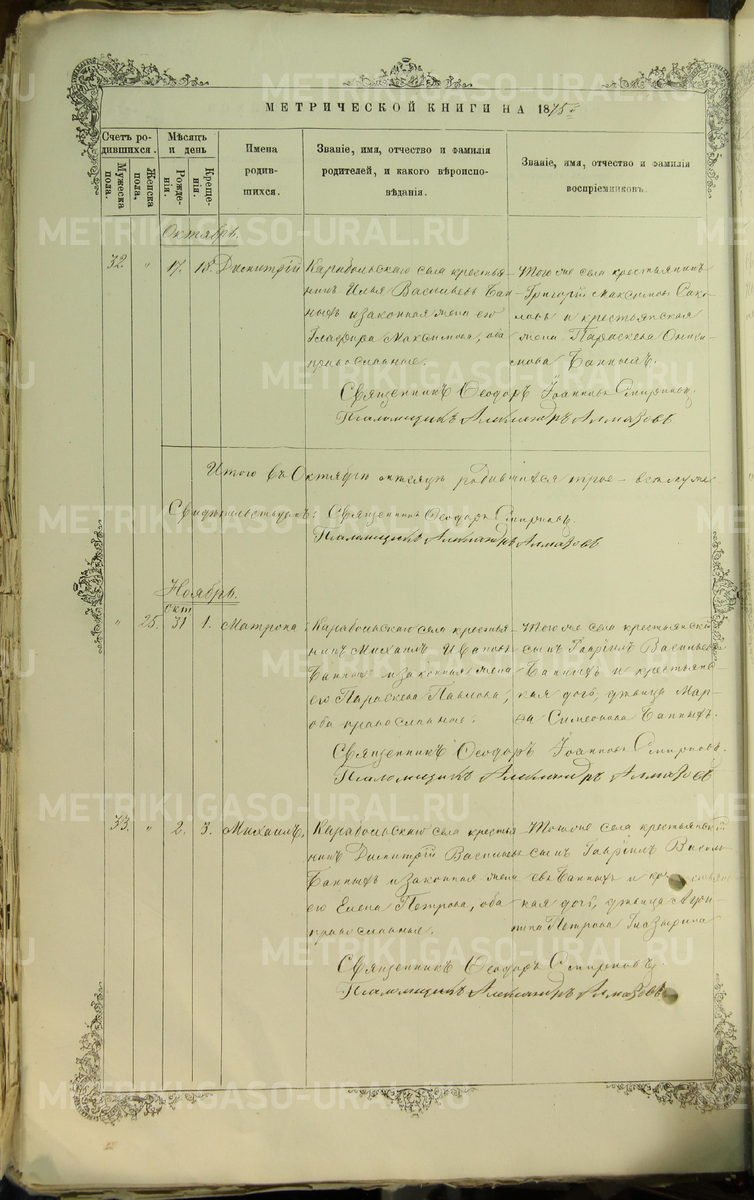 МЕТРИЧЕСКОЙ КНИГИ НА 1875й
Счетъ родившихся.
Мужеска пола.
Женска пола.
Мѣсяцъ и день
Рожденія.
Крещенія.
Имена
родив-
шихся.
Званіе, имя, отчество и фамилія
родителей, и какого вѣроиспо-
вѣданія.
Званіе, имя, отчество и фамилія
воспріемниковъ.
Октябрь.
32. " 17. 18. Димитрій
Карабольскаго села крестья-
нинъ Илья Васильевъ Бан-
ныхъ и законная жена его
Глафира Максимова, оба
православные.
Того же села крестьянинъ
Григорій Максимовъ Соко-
ловъ и крестьянская
жена Параскева Ониси-
мова Банныхъ.
Священникъ Ѳеодоръ Іоанновъ Смирновъ.
Псаломщикъ Александръ Алмазовъ
Итого въ Октябрѣ мѣсяцѣ родившихся трое - все муж.
Свидѣтельствуемъ: Священникъ Ѳеодоръ Смирновъ.
Псаломщикъ Александръ Алмазовъ
Ноябрь.
Окт
" 25. 31 1. Матрона.
Карабольскаго села крестья-
нинъ Михаилъ Ивановъ
Банныхъ и законная жена
его Параскева Павлова,
оба православные.
Того же села крестьянскій
сынъ Гавріилъ Васильевъ
Банныхъ и крестьянс-
кая дочь, дѣвица Мар-
ѳа Симеонова Банныхъ.
Священникъ Ѳеодоръ Іоанновъ Смирновъ.
Псаломщикъ Александръ Алмазовъ
33. " 2. 3. Михаилъ.
Карабольскаго села крестья-
нинъ Димитрій Васильевъ
Банныхъ и законная жена
его Елена Петрова, оба
православные.
Того же села крестьянскій
сынъ Гавріилъ Василь-
евъ Банныхъ и крестьянс-
кая дочь, дѣвица
Петрова Глазырина
Священникъ Ѳеодоръ Смирновъ.
Псаломщикъ Александръ Алмазовъ
METRIKI.GASO-URAL.RU